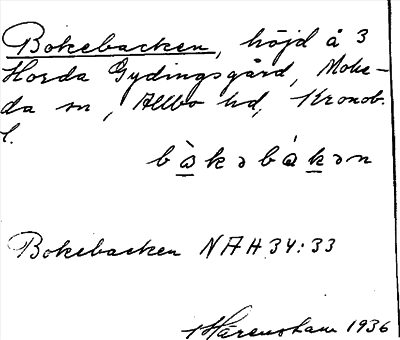 Bokebacken, höjd å 3
Horda Gydingsgård, Mohe-
da sn, Allbo hd, Kronob.
l.
bòkəbákən
Bokebacken NAH 34:33
1936